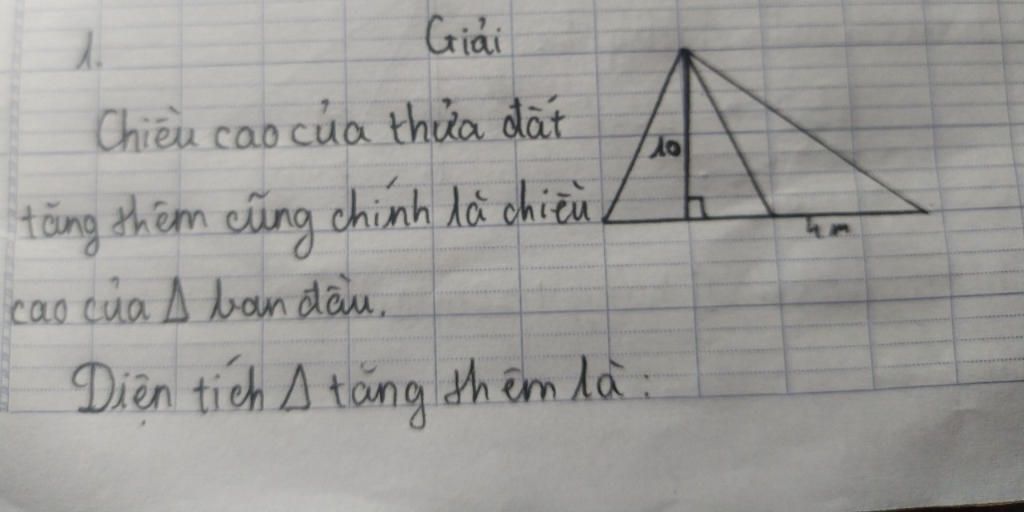 1. Giải
Chiều cao của thửa đất
tăng thêm cũng chính là chiều
cao của Δ ban đầu.
Diện tích Δ tăng thêm là:
10
4m